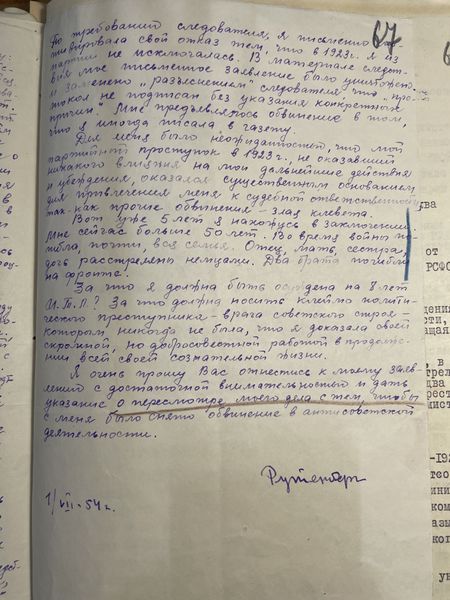 67
По требованию следователя, я письменно мо-
тивировала свой отказ тем, что в 1923 г. я из
партии не исключалась. В материале следст-
вия мое письменное заявление было уничтоже-
но и заменено „разъяснением" следователя, что „про-
токол не подписан без указания конкретных
причин". Мне предъявлялось обвинение в том,
что я иногда писала в газету.
Для меня было неожиданностью, что мой
партийный проступок в 1923 г., не оказавший
никакого влияния на мои дальнейшие действия
и убеждения, оказался существенным основанием
для привлечения меня к судебной ответственности
так как прочие обвинения – злая клевета.
Вот уже 5 лет я нахожусь в заключении.
Мне сейчас больше 50 лет. Во время войны по-
гибла, почти, вся семья. Отец, мать, сестра,
дочь расстреляны немцами. Два брата погибли
на фронте!
За что я должна быть осуждена на 8 лет
И.Т.Л.? За что должна носить клеймо полити-
ческого преступника – врага советского строя –
которым никогда не была, что я доказала своей
скромной, но добросовестной работой в продолже-
нии всей своей сознательной жизни.
Я очень прошу Вас отнестись к моему заяв-
лению с достаточной внимательностью и дать
указание о пересмотре моего дела с тем, чтобы
с меня было снято обвинение в антисоветской
деятельности.
Рутенберг
1/VII-54 г.